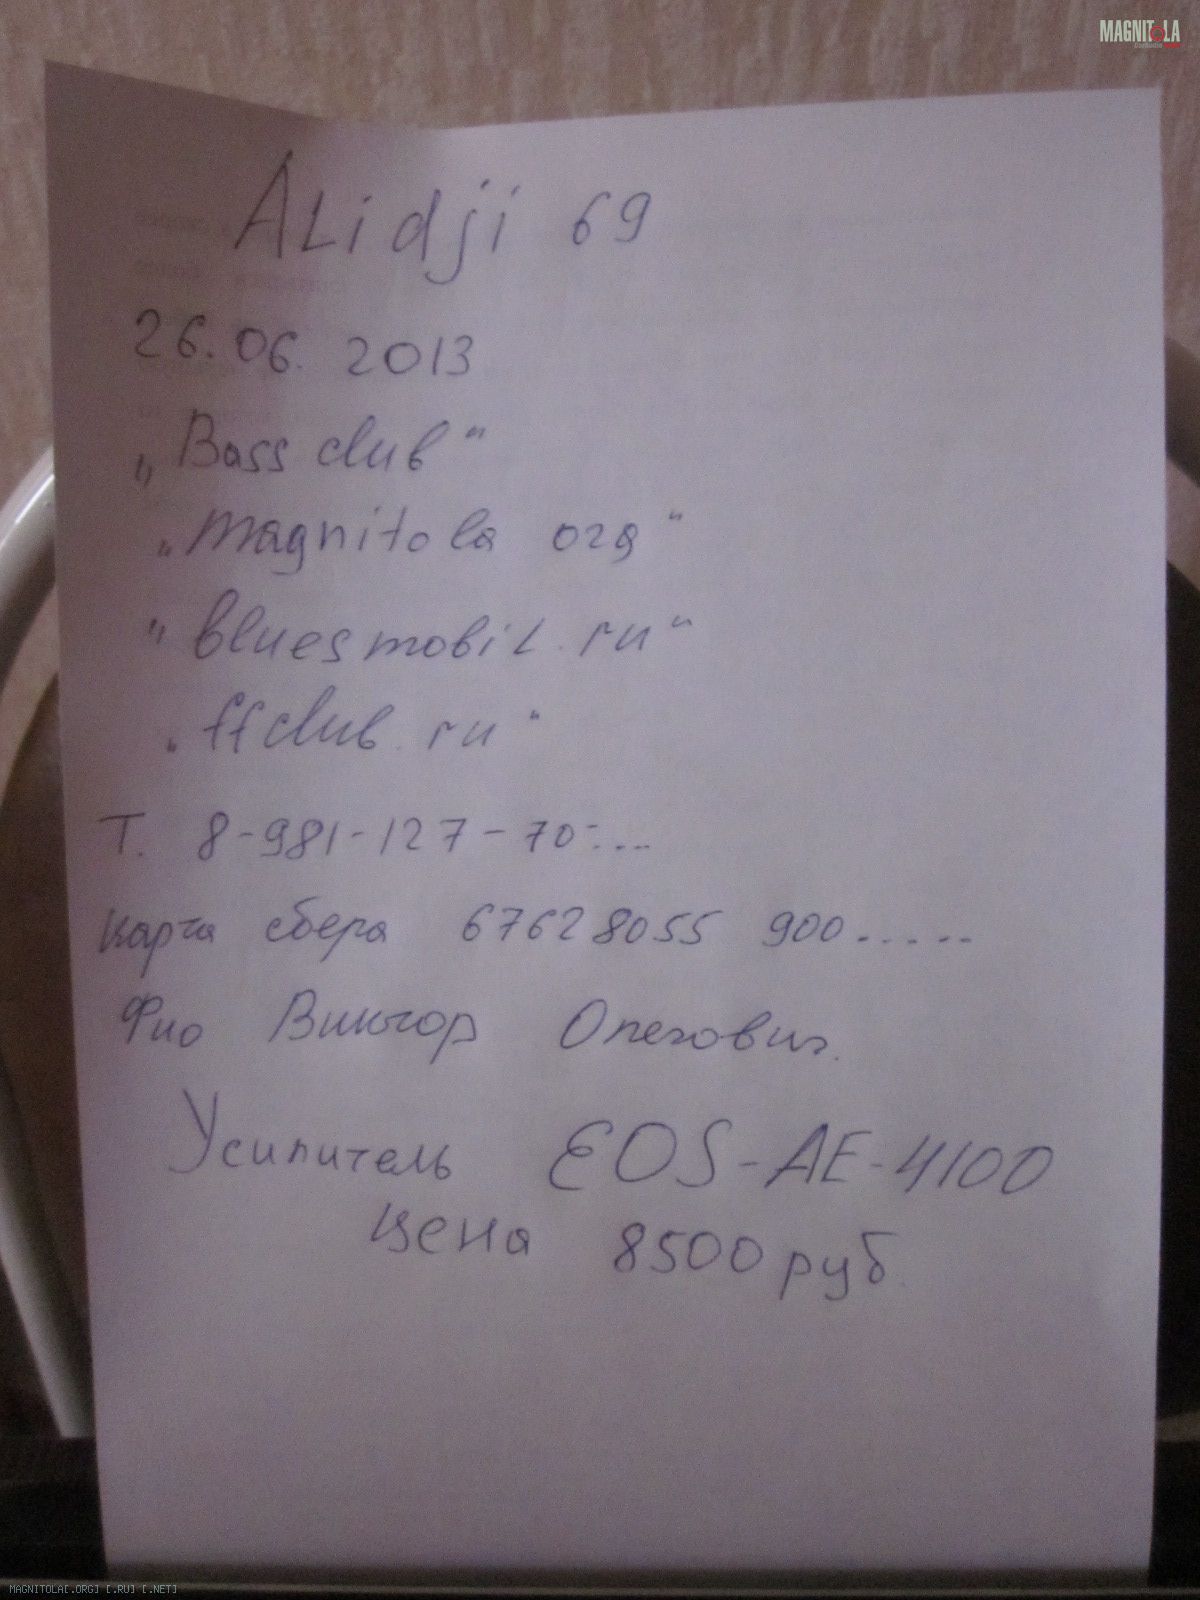 MAGNITOLA
ALidji 69
26.06. 2013
„Bass club“
„magnitola org“
"bluesmobil.ru"
„ffclub.ru"
Т. 8-981-127-70-....
карта сбера 67628055 900.....
Фио Виктор Олегович.
Усилитель EOS-AE-4100
цена 8500 руб.
MAGNITOLA[.ORG] [.RU] [.NET]